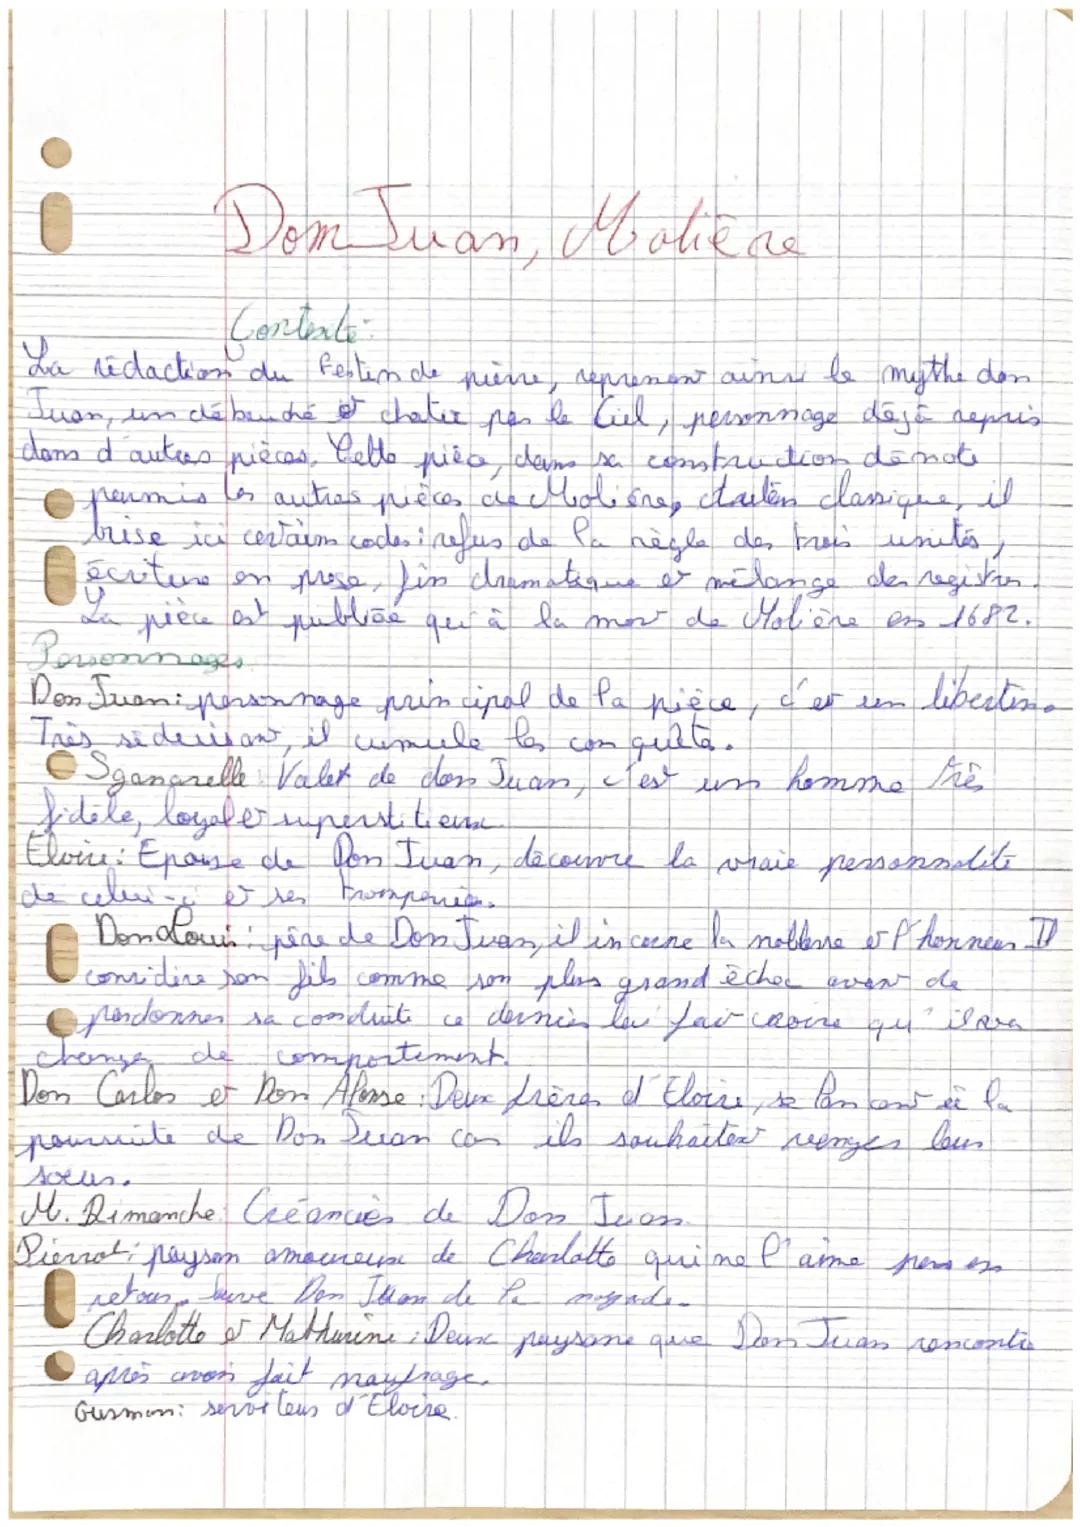 Dom Juan, Molière
Contexte:
La rédaction du Festin de pierre, reprenant ainsi le mythe don
Juan, un débauché et chatié par le Ciel, personnage déjà repris
dans d'autres pièces. Cette pièce, dans sa construction dénote
parmis les autres pièces de Molière, classique, il
brise ici certains codes: refus de la règle des trois unités,
écriture en prose, fin dramatique et mélange des registres.
La pièce est publiée qu'à la mort de Molière en 1682.
Personnages
Don Juan: personnage principal de la pièce, c'est un libertin.
Très séduisant, il cumule les conquêtes.
Sganarelle: Valet de don Juan, c'est un homme très
fidèle, loyal et superstitieux
Elvire: Epouse de Don Juan, découvre la vraie personnalité
de celui-ci et ses tromperies.
Don Louis: père de Don Juan, il incarne la noblesse et l'honneur Il
considère son fils comme son plus grand échec avant de
pardonner sa conduite ce dernier lui fait croire qu'il va
changer de comportement.
Don Carlos et Don Alonse: Deux frères d'Elvire, se lancent à la
poursuite de Don Juan car ils souhaitent venger leur
soeur.
M. Dimanche: Créancier de Don Juan
Pierrot: paysan amoureux de Charlotte qui ne l'aime pas en
retour, sauve Don Juan de la noyade.
Charlotte et Mathurine: Deux paysane que Don Juan rencontre
après avoir fait naufrage.
Gusman: serviteur d'Elvire.